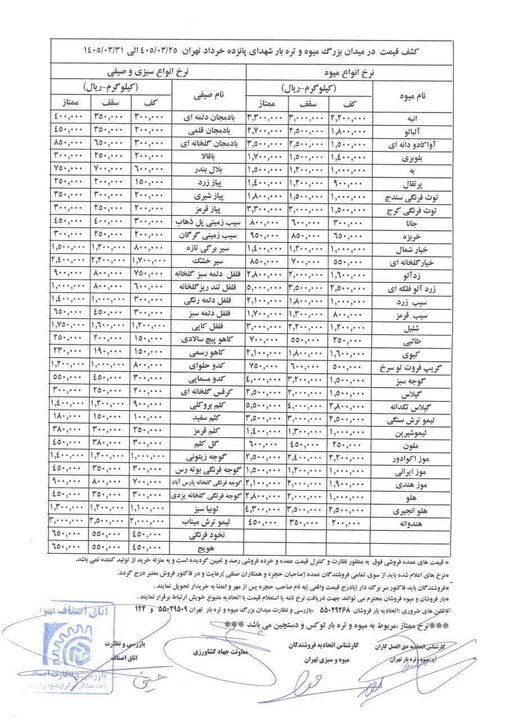 کشف قیمت در میدان بزرگ میوه و تره بار شهدای پانزده خرداد تهران ۱۴۰۵/۰۳/۲۵ الی ۱۴۰۵/۰۳/۳۱
نرخ انواع میوه نرخ انواع سبزی و صیفی
نام میوه (کیلوگرم-ریال) نام صیفی (کیلوگرم-ریال)
کف سقف ممتاز کف سقف ممتاز
انبه ۲,۲۰۰,۰۰۰ ۳,۰۰۰,۰۰۰ ۳,۳۰۰,۰۰۰ بادمجان دلمه ای ۳۰۰,۰۰۰ ۳۵۰,۰۰۰ ۴۰۰,۰۰۰
آلبالو ۱,۸۰۰,۰۰۰ ۲,۵۰۰,۰۰۰ ۲,۷۰۰,۰۰۰ بادمجان قلمی ۲۰۰,۰۰۰ ۳۵۰,۰۰۰ ۴۵۰,۰۰۰
آواکادو دانه ای ۱,۵۰۰,۰۰۰ ۲,۵۰۰,۰۰۰ ۳,۵۰۰,۰۰۰ بادمجان گلخانه ای ۳۰۰,۰۰۰ ۶۵۰,۰۰۰ ۸۵۰,۰۰۰
بلوبری ۱,۴۰۰,۰۰۰ ۱,۵۰۰,۰۰۰ ۱,۷۰۰,۰۰۰ باقالا ۲۰۰,۰۰۰ ۳۰۰,۰۰۰ ۳۵۰,۰۰۰
به ۱,۰۰۰,۰۰۰ ۱,۲۰۰,۰۰۰ ۱,۵۰۰,۰۰۰ بلال بندر ۶۰۰,۰۰۰ ۷۰۰,۰۰۰ ۷۵۰,۰۰۰
پرتقال ۹۰۰,۰۰۰ ۱,۲۰۰,۰۰۰ ۱,۴۰۰,۰۰۰ پیاز زرد ۱۵۰,۰۰۰ ۲۰۰,۰۰۰ ۲۵۰,۰۰۰
توت فرنگی سنندج ۱,۰۰۰,۰۰۰ ۱,۵۰۰,۰۰۰ ۱,۸۰۰,۰۰۰ پیاز شیری ۲۰۰,۰۰۰ ۲۵۰,۰۰۰ ۳۵۰,۰۰۰
توت فرنگی کرج ۱,۵۰۰,۰۰۰ ۳,۰۰۰,۰۰۰ ۳,۳۰۰,۰۰۰ پیاز قرمز ۲۰۰,۰۰۰ ۲۵۰,۰۰۰ ۳۰۰,۰۰۰
جانا ۳۰۰,۰۰۰ ۶۰۰,۰۰۰ ۸۰۰,۰۰۰ سیب زمینی پل ذهاب ۳۰۰,۰۰۰ ۴۰۰,۰۰۰ ۴۵۰,۰۰۰
خربزه ۶۵۰,۰۰۰ ۸۵۰,۰۰۰ ۹۵۰,۰۰۰ سیب زمینی گرگان ۲۰۰,۰۰۰ ۲۵۰,۰۰۰ ۳۰۰,۰۰۰
خیار شمال ۱,۰۰۰,۰۰۰ ۱,۲۰۰,۰۰۰ ۱,۴۰۰,۰۰۰ سیر برگی تازه ۸۰۰,۰۰۰ ۱,۲۰۰,۰۰۰ ۱,۵۰۰,۰۰۰
خیارگلخانه ای ۵۵۰,۰۰۰ ۷۰۰,۰۰۰ ۸۵۰,۰۰۰ سیر خشک ۱,۷۰۰,۰۰۰ ۲,۲۰۰,۰۰۰ ۲,۴۰۰,۰۰۰
زدآلو ۱,۶۰۰,۰۰۰ ۲,۰۰۰,۰۰۰ ۲,۸۰۰,۰۰۰ فلفل دلمه سبز گلخانه ۷۵۰,۰۰۰ ۸۰۰,۰۰۰ ۹۰۰,۰۰۰
زرد آلو فلکه ای ۲,۵۰۰,۰۰۰ ۳,۵۰۰,۰۰۰ فلفل تند ریزگلخانه ۶۰۰,۰۰۰ ۸۰۰,۰۰۰ ۱,۰۰۰,۰۰۰
سیب زرد ۱,۰۰۰,۰۰۰ ۱,۸۰۰,۰۰۰ ۲,۱۰۰,۰۰۰ فلفل دلمه رنگی ۳۰۰,۰۰۰ ۱,۰۰۰,۰۰۰ ۱,۴۰۰,۰۰۰
سیب قرمز ۸۰۰,۰۰۰ ۱,۳۰۰,۰۰۰ ۱,۷۰۰,۰۰۰ فلفل دلمه سبز ۳۰۰,۰۰۰ ۴۵۰,۰۰۰ ۶۵۰,۰۰۰
شلیل ۱,۲۰۰,۰۰۰ ۲,۲۰۰,۰۰۰ ۳,۰۰۰,۰۰۰ فلفل کاپی ۱,۲۰۰,۰۰۰ ۱,۶۰۰,۰۰۰ ۱,۷۵۰,۰۰۰
طالبی ۲۵۰,۰۰۰ ۵۵۰,۰۰۰ ۷۰۰,۰۰۰ کاهو پیچ سالادی ۱۵۰,۰۰۰ ۲۰۰,۰۰۰ ۲۵۰,۰۰۰
کیوی ۱,۶۰۰,۰۰۰ ۱,۸۰۰,۰۰۰ ۲,۱۰۰,۰۰۰ کاهو رسمی ۱۵۰,۰۰۰ ۱۹۰,۰۰۰ ۲۳۰,۰۰۰
گریپ فروت تو سرخ ۵۰۰,۰۰۰ ۶۰۰,۰۰۰ ۷۵۰,۰۰۰ کدو حلوای ۸۰۰,۰۰۰ ۱,۰۰۰,۰۰۰ ۱,۲۰۰,۰۰۰
گوجه سبز ۱,۵۰۰,۰۰۰ ۳,۲۰۰,۰۰۰ ۴,۰۰۰,۰۰۰ کدو مسمایی ۳۰۰,۰۰۰ ۴۵۰,۰۰۰ ۵۵۰,۰۰۰
گیلاس ۱,۵۰۰,۰۰۰ ۲,۲۰۰,۰۰۰ ۲,۵۰۰,۰۰۰ کرفس گلخانه ای ۲۰۰,۰۰۰ ۳۵۰,۰۰۰ ۴۵۰,۰۰۰
گیلاس تکدانه ۲,۸۰۰,۰۰۰ ۴,۰۰۰,۰۰۰ ۵,۵۰۰,۰۰۰ کلم بروکلی ۹۰۰,۰۰۰ ۱,۲۰۰,۰۰۰ ۱,۴۰۰,۰۰۰
لیمو ترش سنگی ۲,۵۰۰,۰۰۰ ۳,۰۰۰,۰۰۰ ۳,۵۰۰,۰۰۰ کلم سفید ۱۰۰,۰۰۰ ۱۵۰,۰۰۰ ۱۸۰,۰۰۰
لیموشیرین ۹۰۰,۰۰۰ ۱,۳۰۰,۰۰۰ ۱,۴۰۰,۰۰۰ کلم قرمز ۲۵۰,۰۰۰ ۳۰۰,۰۰۰ ۳۸۰,۰۰۰
ملون ۲۵۰,۰۰۰ ۴۵۰,۰۰۰ ۶۰۰,۰۰۰ گل کلم ۳۰۰,۰۰۰ ۳۸۰,۰۰۰ ۴۵۰,۰۰۰
موز اکوادور ۲,۲۰۰,۰۰۰ ۲,۴۰۰,۰۰۰ ۲,۵۰۰,۰۰۰ گوجه زیتونی ۱,۰۰۰,۰۰۰ ۱,۲۰۰,۰۰۰ ۱,۴۰۰,۰۰۰
موز ایرانی ۱,۰۰۰,۰۰۰ ۱,۲۰۰,۰۰۰ ۱,۵۰۰,۰۰۰ گوجه فرنگی بوته رس ۳۰۰,۰۰۰ ۳۵۰,۰۰۰ ۴۵۰,۰۰۰
موز هندی ۱,۹۰۰,۰۰۰ ۲,۰۰۰,۰۰۰ ۲,۱۰۰,۰۰۰ گوجه فرنگی گلخانه پارس آباد ۷۰۰,۰۰۰ ۸۰۰,۰۰۰ ۹۰۰,۰۰۰
هلو ۱,۰۰۰,۰۰۰ ۲,۰۰۰,۰۰۰ ۲,۸۰۰,۰۰۰ گوجه فرنگی گلخانه یزدی ۲۰۰,۰۰۰ ۳۵۰,۰۰۰ ۴۵۰,۰۰۰
هلو انجیری ۲,۰۰۰,۰۰۰ ۲,۵۰۰,۰۰۰ ۳,۵۰۰,۰۰۰ لوبیا سبز ۱,۱۰۰,۰۰۰ ۱,۲۰۰,۰۰۰ ۱,۳۰۰,۰۰۰
هندوانه ۲۰۰,۰۰۰ ۳۵۰,۰۰۰ ۴۵۰,۰۰۰ لیمو ترش میناب ۲,۰۰۰,۰۰۰ ۲,۵۰۰,۰۰۰ ۳,۰۰۰,۰۰۰
نخود فرنگی ۴۵۰,۰۰۰ ۵۵۰,۰۰۰ ۶۵۰,۰۰۰
هویج ۴۵۰,۰۰۰ ۵۵۰,۰۰۰ ۶۵۰,۰۰۰
* قیمت های عمده فروشی فوق به منظور نظارت و کنترل قیمت عمده و خرده فروشی رصد و تعیین گردیده است و به منزله خرید از تولید کننده نمی باشد.
*نرخ های اعلام شده باید از سوی تمامی فروشندگان عمده (صاحبان حجره و همکاران صنفی) رعایت و در فاکتور فروش معتبر درج گردد.
*فروشندگان باید فاکتور برگ دار (بادرج قیمت واقعی) به نام صاحب حجره پس از مهر و امضا به خریدار تحویل نمایند.
* بار فروشان و فروشندگان محترم می توانند جهت دریافت نرخ نامه یا استعلام قیمت با اتحادیه متبوع خویش ارتباط برقرار نمایند.
*تلفن های ضروری اتحادیه بار فروشان ۵۵۰۲۹۲۶۸ -بازرسی و نظارت میدان بزرگ میوه و تره بار تهران ۵۵۰۲۹۵۰۹ و ۱۲۴
***نرخ ممتاز ،مربوط به میوه و تره بار لوکس و دستچین می باشد.***
کارشناس اتحادیه حق العمل کاران کارشناس اتحادیه فروشندگان معاونت جهاد کشاورزی بازرسی و نظارت
میوه و تره بار تهران میوه و سبزی تهران اتاق اصناف
اتاق اصناف
بازرسی و نظارت